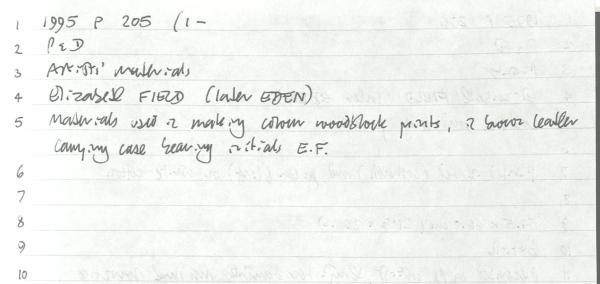 1 1995 P 205 (1-
2 P&D
3 Artists' materials
4 Elizabeth FIELD (later EDEN)
5 Materials used in making colour woodblock prints, in brown leather
carrying case bearing initials E.F.
6
7
8
9
10